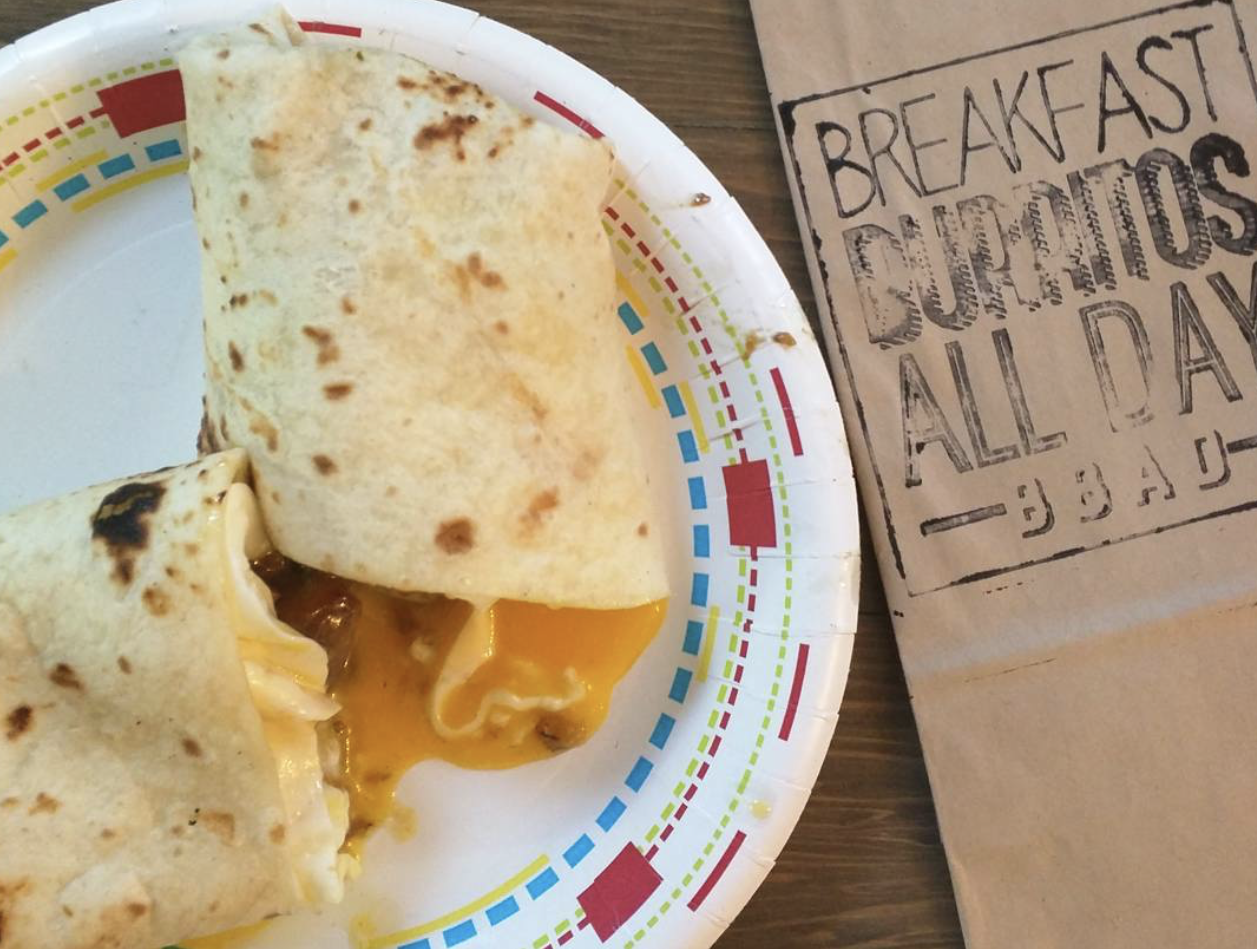 BREAKFAST
BURRITOS
ALL DAY
BBAD